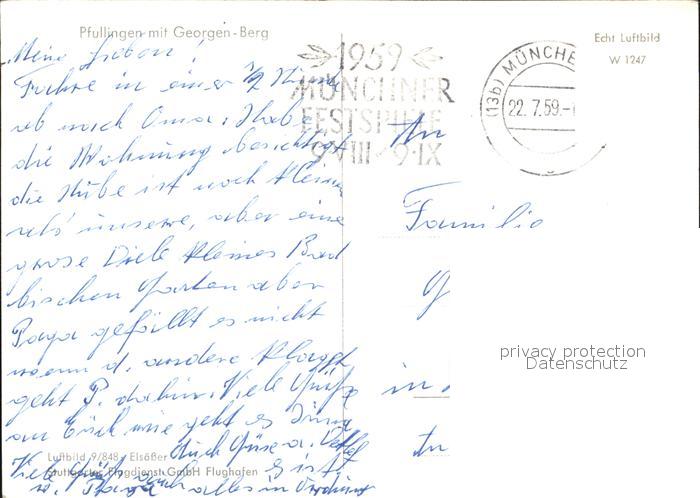 Pfullingen mit Georgen-Berg
Echt Luftbild
W 1247
1959
MÜNCHNER
FESTSPIELE
9·VIII - 9·IX
(13b) MÜNCHE
22.7.59.-
Meine Lieben!
Fahre in einer 1/2 Stunde
ab nach Oma. Habe
die Wohnung besichtigt
die Stube ist noch kleiner
als unsere, aber eine
grose Diele kleines Bad
bischen Garten aber
Papa gefällt es nicht
wenn d. andere klappt
geht P. dahin. Viele Grüße
an Euch wie geht es
Viele Grüße auch
Papa alles in Ordnung
es ist
An
Familie
G
in
privacy protection
Datenschutz
Luftbild 9/848 Elsäßer
Stuttgarter Flugdienst GmbH Flughafen